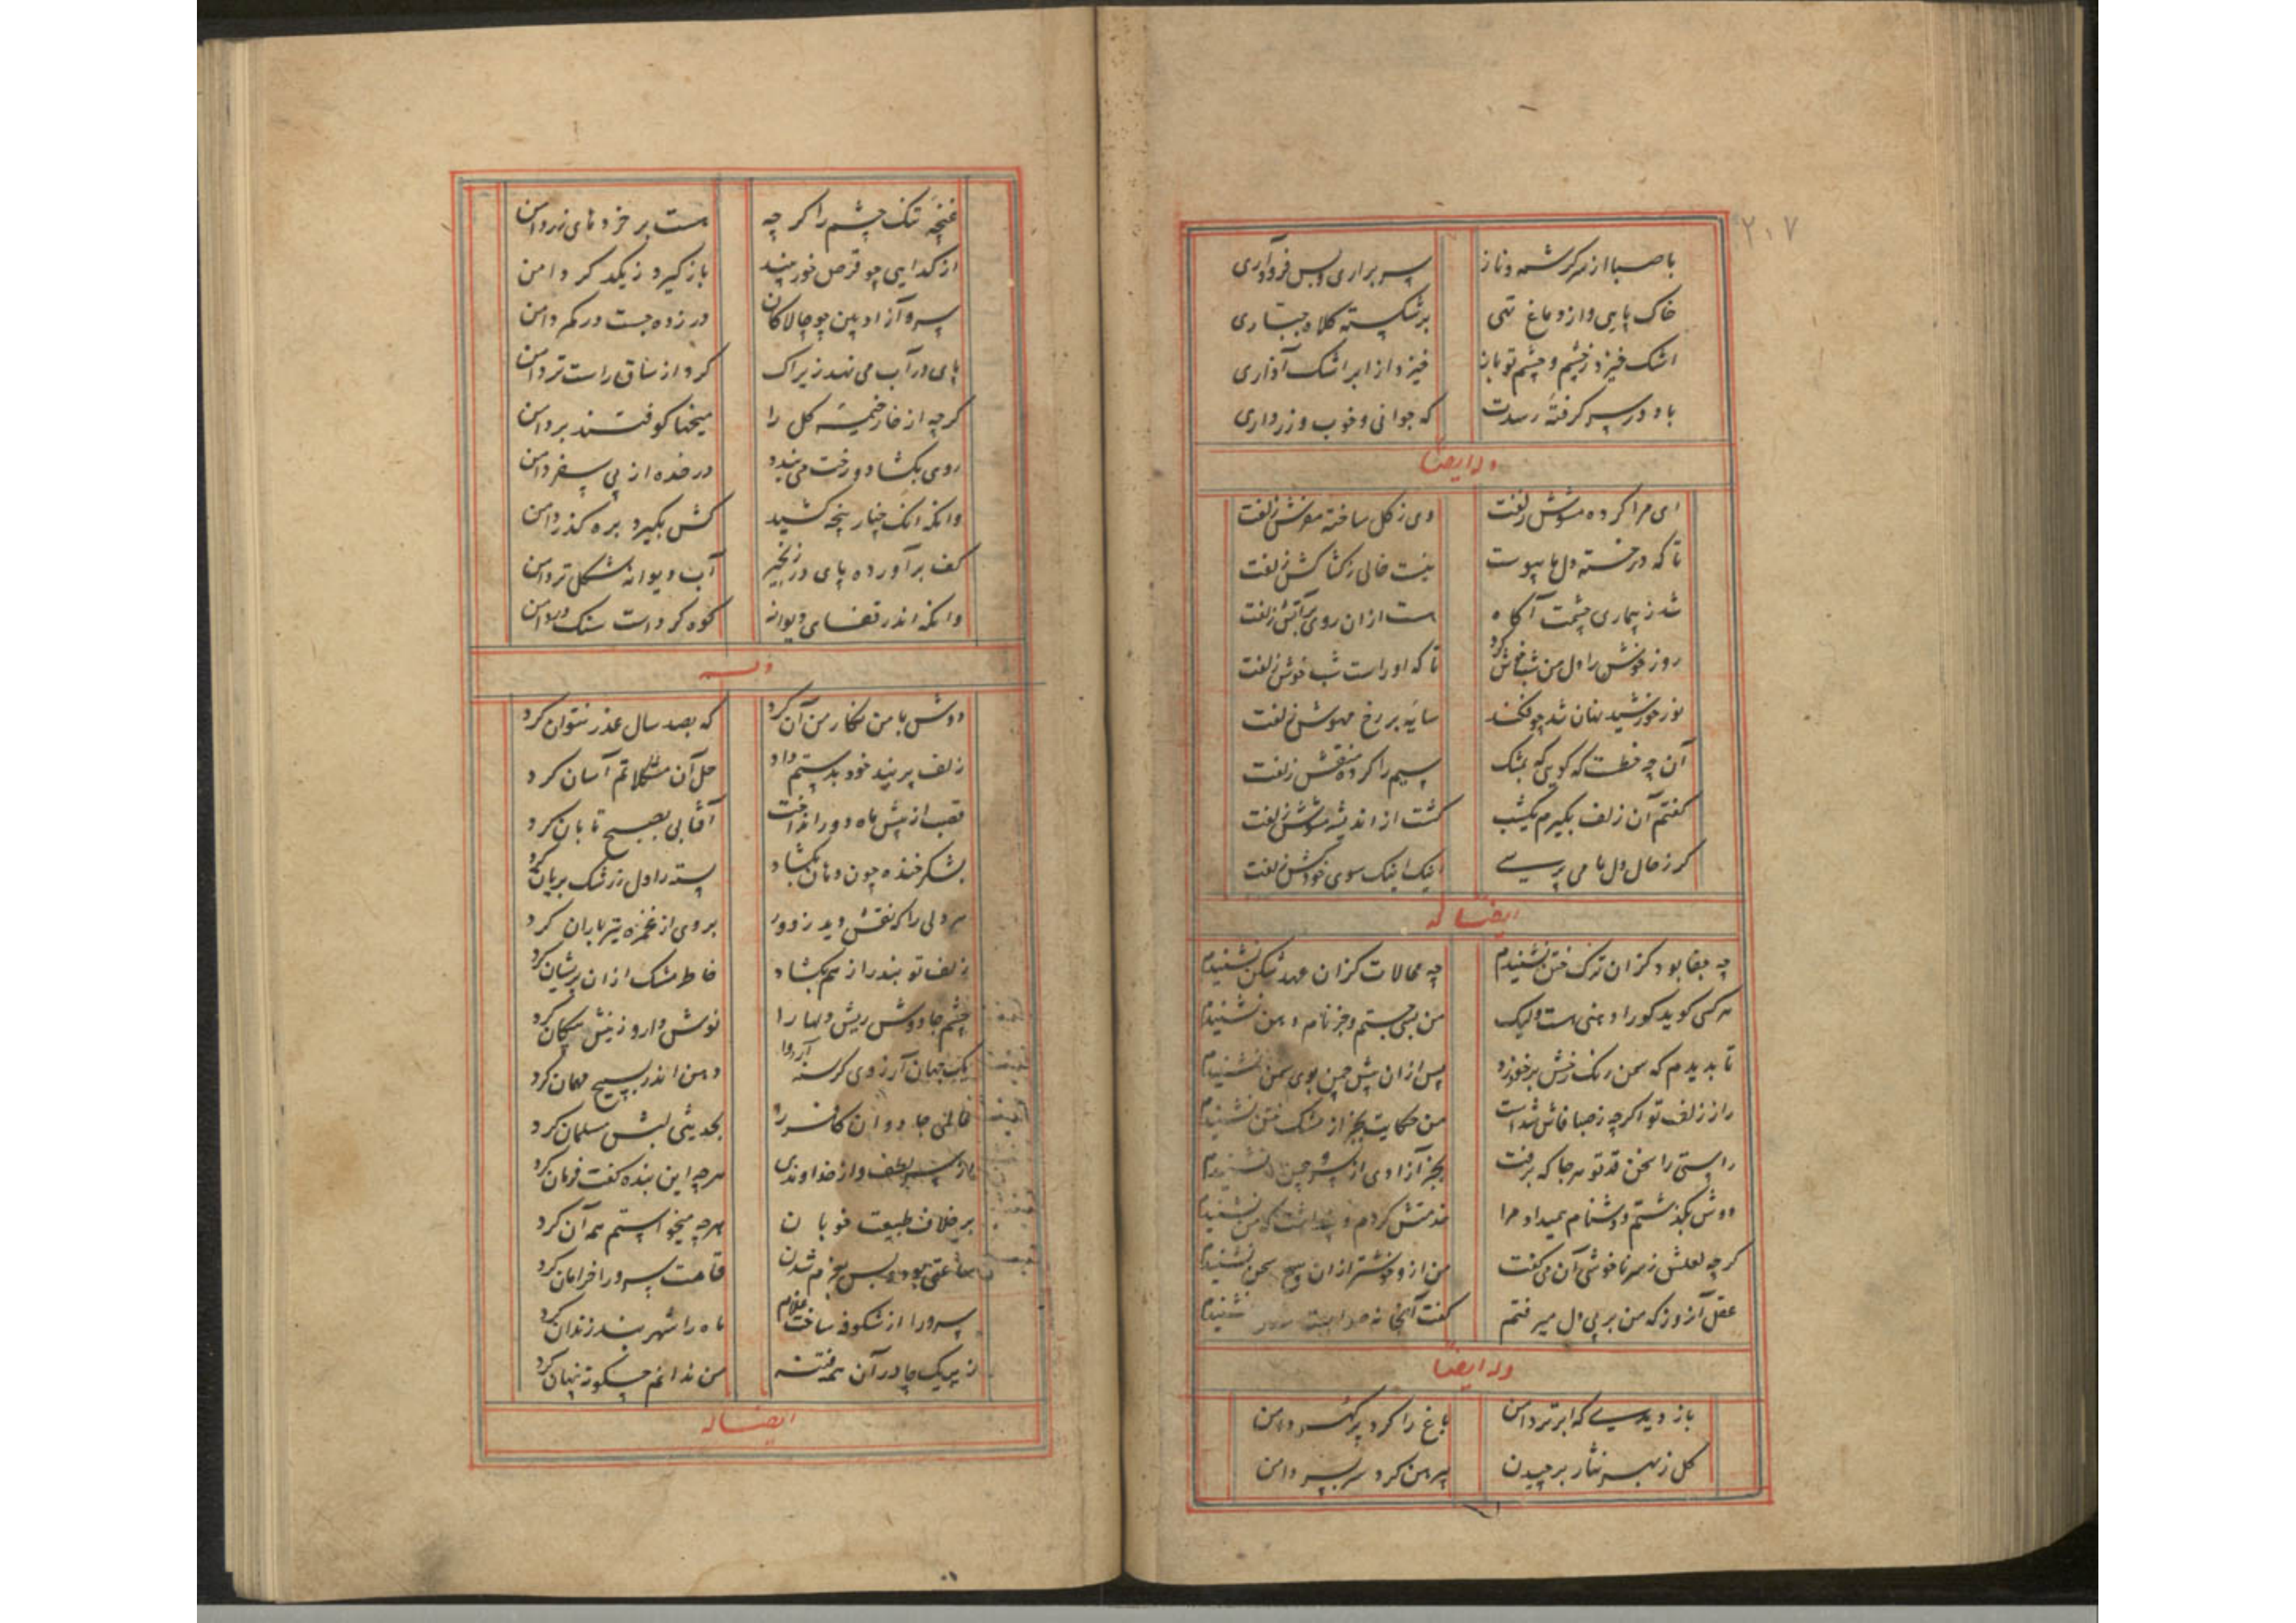 ۲۰۷
با صبا از سر کرشمه و ناز
سر براری و بس فرو آری
خاک پایی و از دماغ تهی
بر شکسته کلاه جباری
اشک خیزد ز چشم و چشم تو باز
خیزد از ابر اشک آذاری
باد در سر گرفته رسدت
که جوانی و خوب و زرداری
وله ایضا
ای مرا کرده مشوش زلفت
وی ز کل ساخته مفرش زلفت
تا که در خسته دل ما پیوست
نیست خالی ز کشاکش زلفت
شد ز بیماری چشمت آکاه
هست از ان روی بر آتش زلفت
روز خوش را دل من شب خوش کرد
تا که او راست شب خوش زلفت
نور خورشید نهان شد چو فکند
سایه بر رخ مهوش زلفت
آن چه خطست که کویی که بمشک
سیم را کرده منقش زلفت
کفتم آن زلف بگیرم یکشب
کشت از اندیشه مشوش زلفت
کر ز حال دل ما می پرسے
اینک اینک سوی خود کش زلفت
ایضا له
چه جفا بود کز ان ترک ختن نشنیدم
چه محالات کز ان عهد شکن نشنیدم
هر کسی کوید کورا دهنی هست ولیک
من بسی جستم و جز نام دهن نشنیدم
تا بدیدم که سمن رنک رخش بر خود زد
پس از ان پیش چمن بوی سمن نشنیدم
راز زلف تو اکرچه ز صبا فاش شدست
من حکایت بجز از مشک ختن نشنیدم
راستی را سخن قد تو هر جا که برفت
بجز آزادی از سرو چمن نشنیدم
دوش بکذشتم و دشنام همیداد مرا
خدمتش کردم و پنداشت که من نشنیدم
کرچه لعلش ز سر ناخوشی آن می کفت
من ازو خوشتر از ان هیچ سخن نشنیدم
عقل آن روز که من بر پی دل میرفتم
کفت آنجا نه نشنیدم
وله ایضا
باز دیدے که ابر تر دامن
باغ را کرد پر کهر دامن
کل ز بهر نثار بر چیدن
پیرهن کرد سر بسر دامن
غنچه تنک چشم را کر چه
هست بر خرده های زر دامن
از کدایی چو قرص خور بیند
باز کیرد ز یکدکر دامن
سرو آزاد بین چو چالاکان
در زده چست در کمر دامن
پای در آب می نهد زیراک
کرد از ساق راست تر دامن
کرچه از خار خیمه کل را
میخها کوفتند بر دامن
روی بکشاد و رخت می بندد
در خنده از پی سفر دامن
وانکه انک چنار پنجه کشید
کش بگیرد بره کذر دامن
کف بر آورده پای در زنجیر
آب دیوانه شکل تر دامن
وانکه اندر قفای دیوانه
کوه کردست سنک در دامن
وله
دوش با من نکار من آن کرد
که بصد سال عذر نتوان کرد
زلف پر بند خود بدستم داد
حل آن مشکلاتم آسان کرد
قصب از پیش ماه دور انداخت
آفتابی بصبح تابان کرد
بشکر خنده چون دهان بکشاد
پسته را دل ز رشک بریان کرد
هر دلی را که نقش دید ز دور
بر وی از غمزه تیر باران کرد
زلف تو بند راز هم بکشاد
خاطر مشک از ان پریشان کرد
چشم جادوش ریش دلها را
نوش دارو ز نیش پیکان کرد
یک جهان آرزوی کرسنه را
دهن اندر بسیج مهمان کرد
ظالمی جادوان کافر را
بحدیثی لبش مسلمان کرد
باز سر لطف و از خداوندی
هر چه این بنده کفت فرمان کرد
بر خلاف طبیعت خوبان
هر چه میخواستم همه آن کرد
ساعتی بود و پس بعزم شدن
قامت سرو را خرامان کرد
سرو را از شکوفه ساخت غلام
ماه را شهر بند زندان کرد
زیر یک چادر آن همه فتنه
من ندانم چکونه پنهان کرد
ایضا له